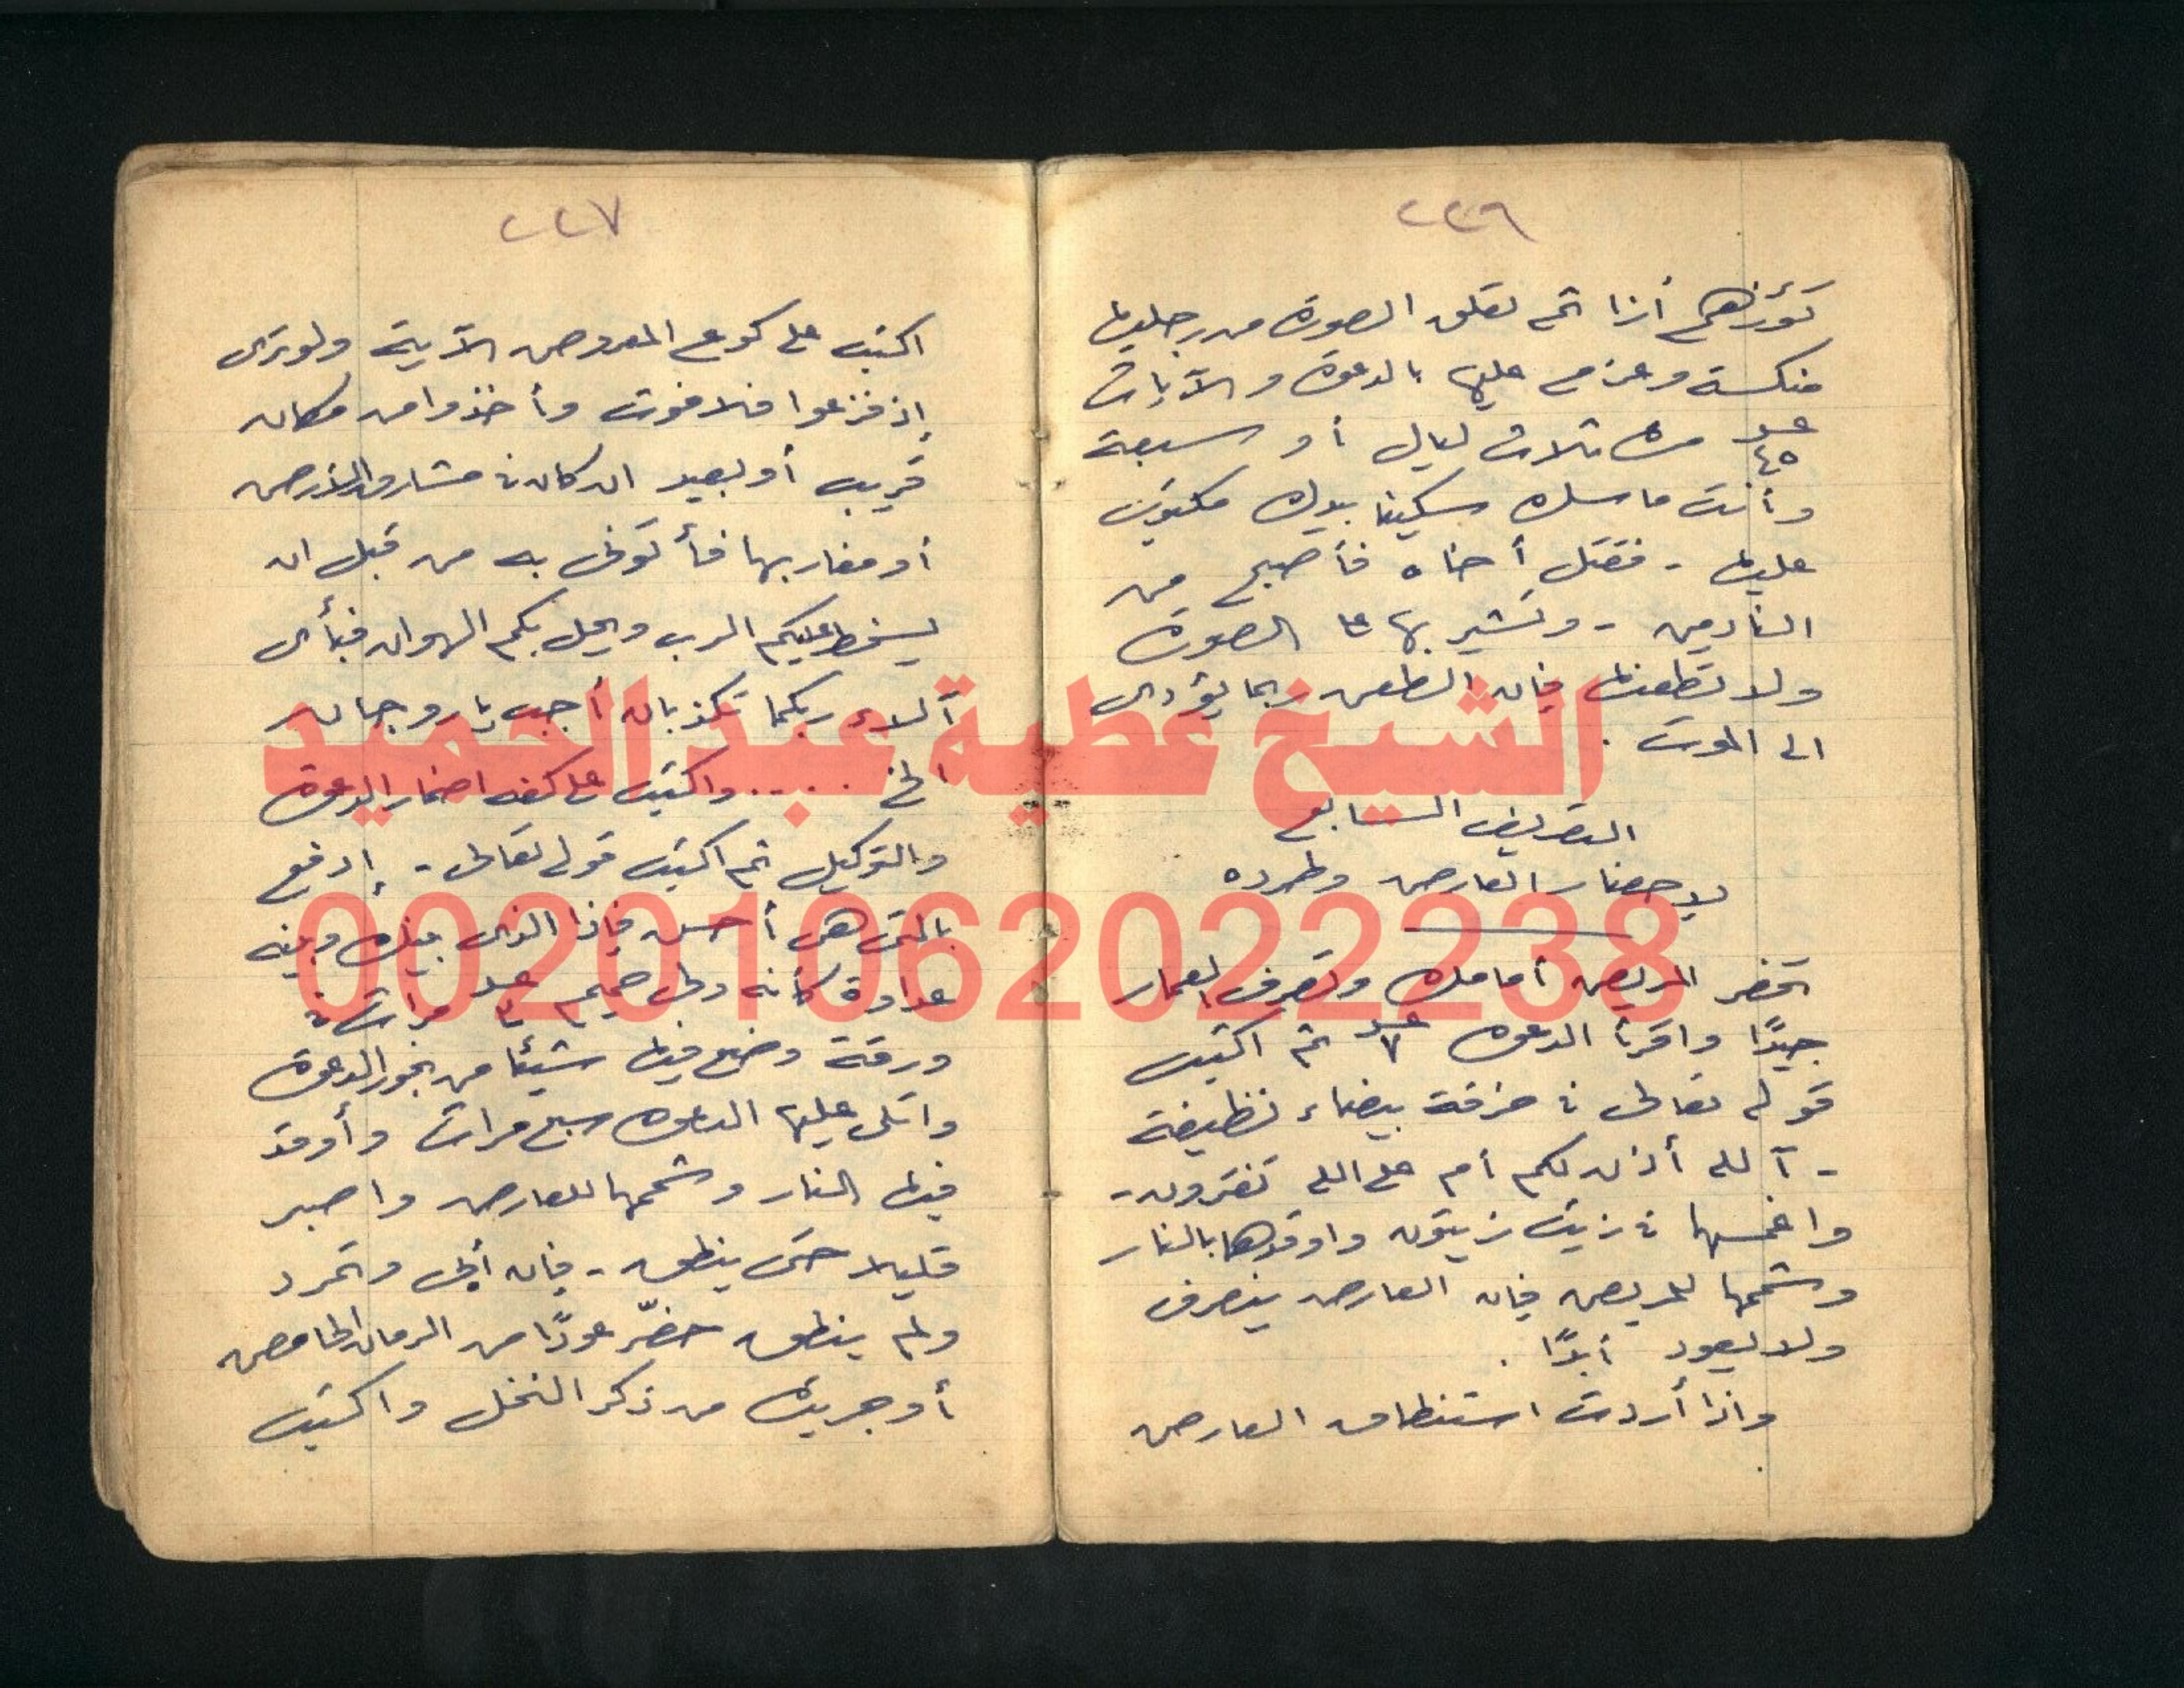 ٢٢٦
تؤزهم أزا ثم تعلق الصورة من رجليها
منكسة وعزم عليها بالدعوة والآيات
عدد ٤٥ مرة ثلاث ليال أو سبعة
وأنت ماسك سكينا بيدك مكتوب
عليها - فقتل أخاه فأصبح من
النادمين - وتشير بها على الصورة
ولا تطعنها فإن الطعن ربما يؤدى
الى الموت .
التصريف السابع
لإحضار العارض وطرده
تحضر المريض أمامك وتصرف العمار
جيدًا واقرأ الدعوة عدد ٧ ثم اكتب
قوله تعالى في خرقة بيضاء نظيفة
- آلله أذن لكم أم على الله تفترون -
واغمسها في زيت زيتون واوقدها بالنار
وشممها للمريض فإن العارض ينصرف
ولا يعود أبدًا .
واذا أردت استنطاق العارض
٢٢٧
اكتب على كوع المعروض الآية ولو ترى
إذ فزعوا فلا فوت وأخذوا من مكان
قريب أو بعيد ان كان في مشارق الأرض
أو مغاربها فأتونى به من قبل ان
يسخط عليكم الرب ويحل بكم الهوان فبأى
آلاء ربكما تكذبان أجب يا روحان
الخ ..... واكتب على كفه اضمار الدعوة
والتوكيل ثم اكتب قوله تعالى - إدفع
بالتى هى أحسن فإذا الذى بينك وبينه
عداوة كأنه ولى حميم عدد مرات في
ورقة وضع فيها شيئا من بخور الدعوة
واتلى عليها الدعوة سبع مرات وأوقد
فيها النار وشممها للعارض واصبر
قليلا حتى ينطق - فإن أبى وتمرد
ولم ينطق حضّر عودًا من الرمان الحامض
أو جريدة من ذكر النخل واكتب
الشيخ عطية عبد الحميد
00201062022238